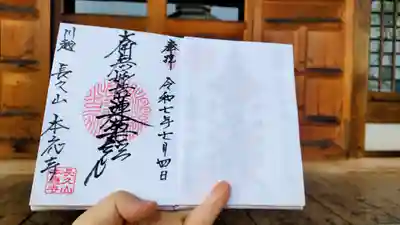 奉拝
令和七年七月四日
南無妙法蓮華経
川越
長久山 本応寺